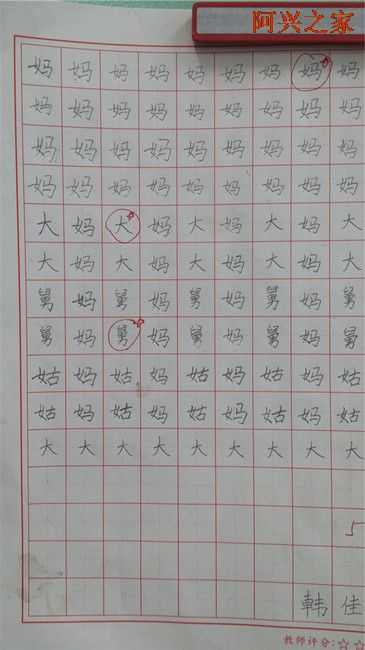 阿兴之家
妈妈妈妈妈妈妈妈妈
妈妈妈妈妈妈妈妈妈
妈妈妈妈妈妈妈妈妈
妈妈妈妈妈妈妈妈妈
大妈大妈大妈大妈大
大妈大妈大妈大妈大
舅妈舅妈舅妈舅妈舅
舅妈舅妈舅妈舅妈舅
姑妈姑妈姑妈姑妈姑
姑妈姑妈姑妈姑妈姑
大大大大大大大大大
5
韩佳
教师评分:☆☆